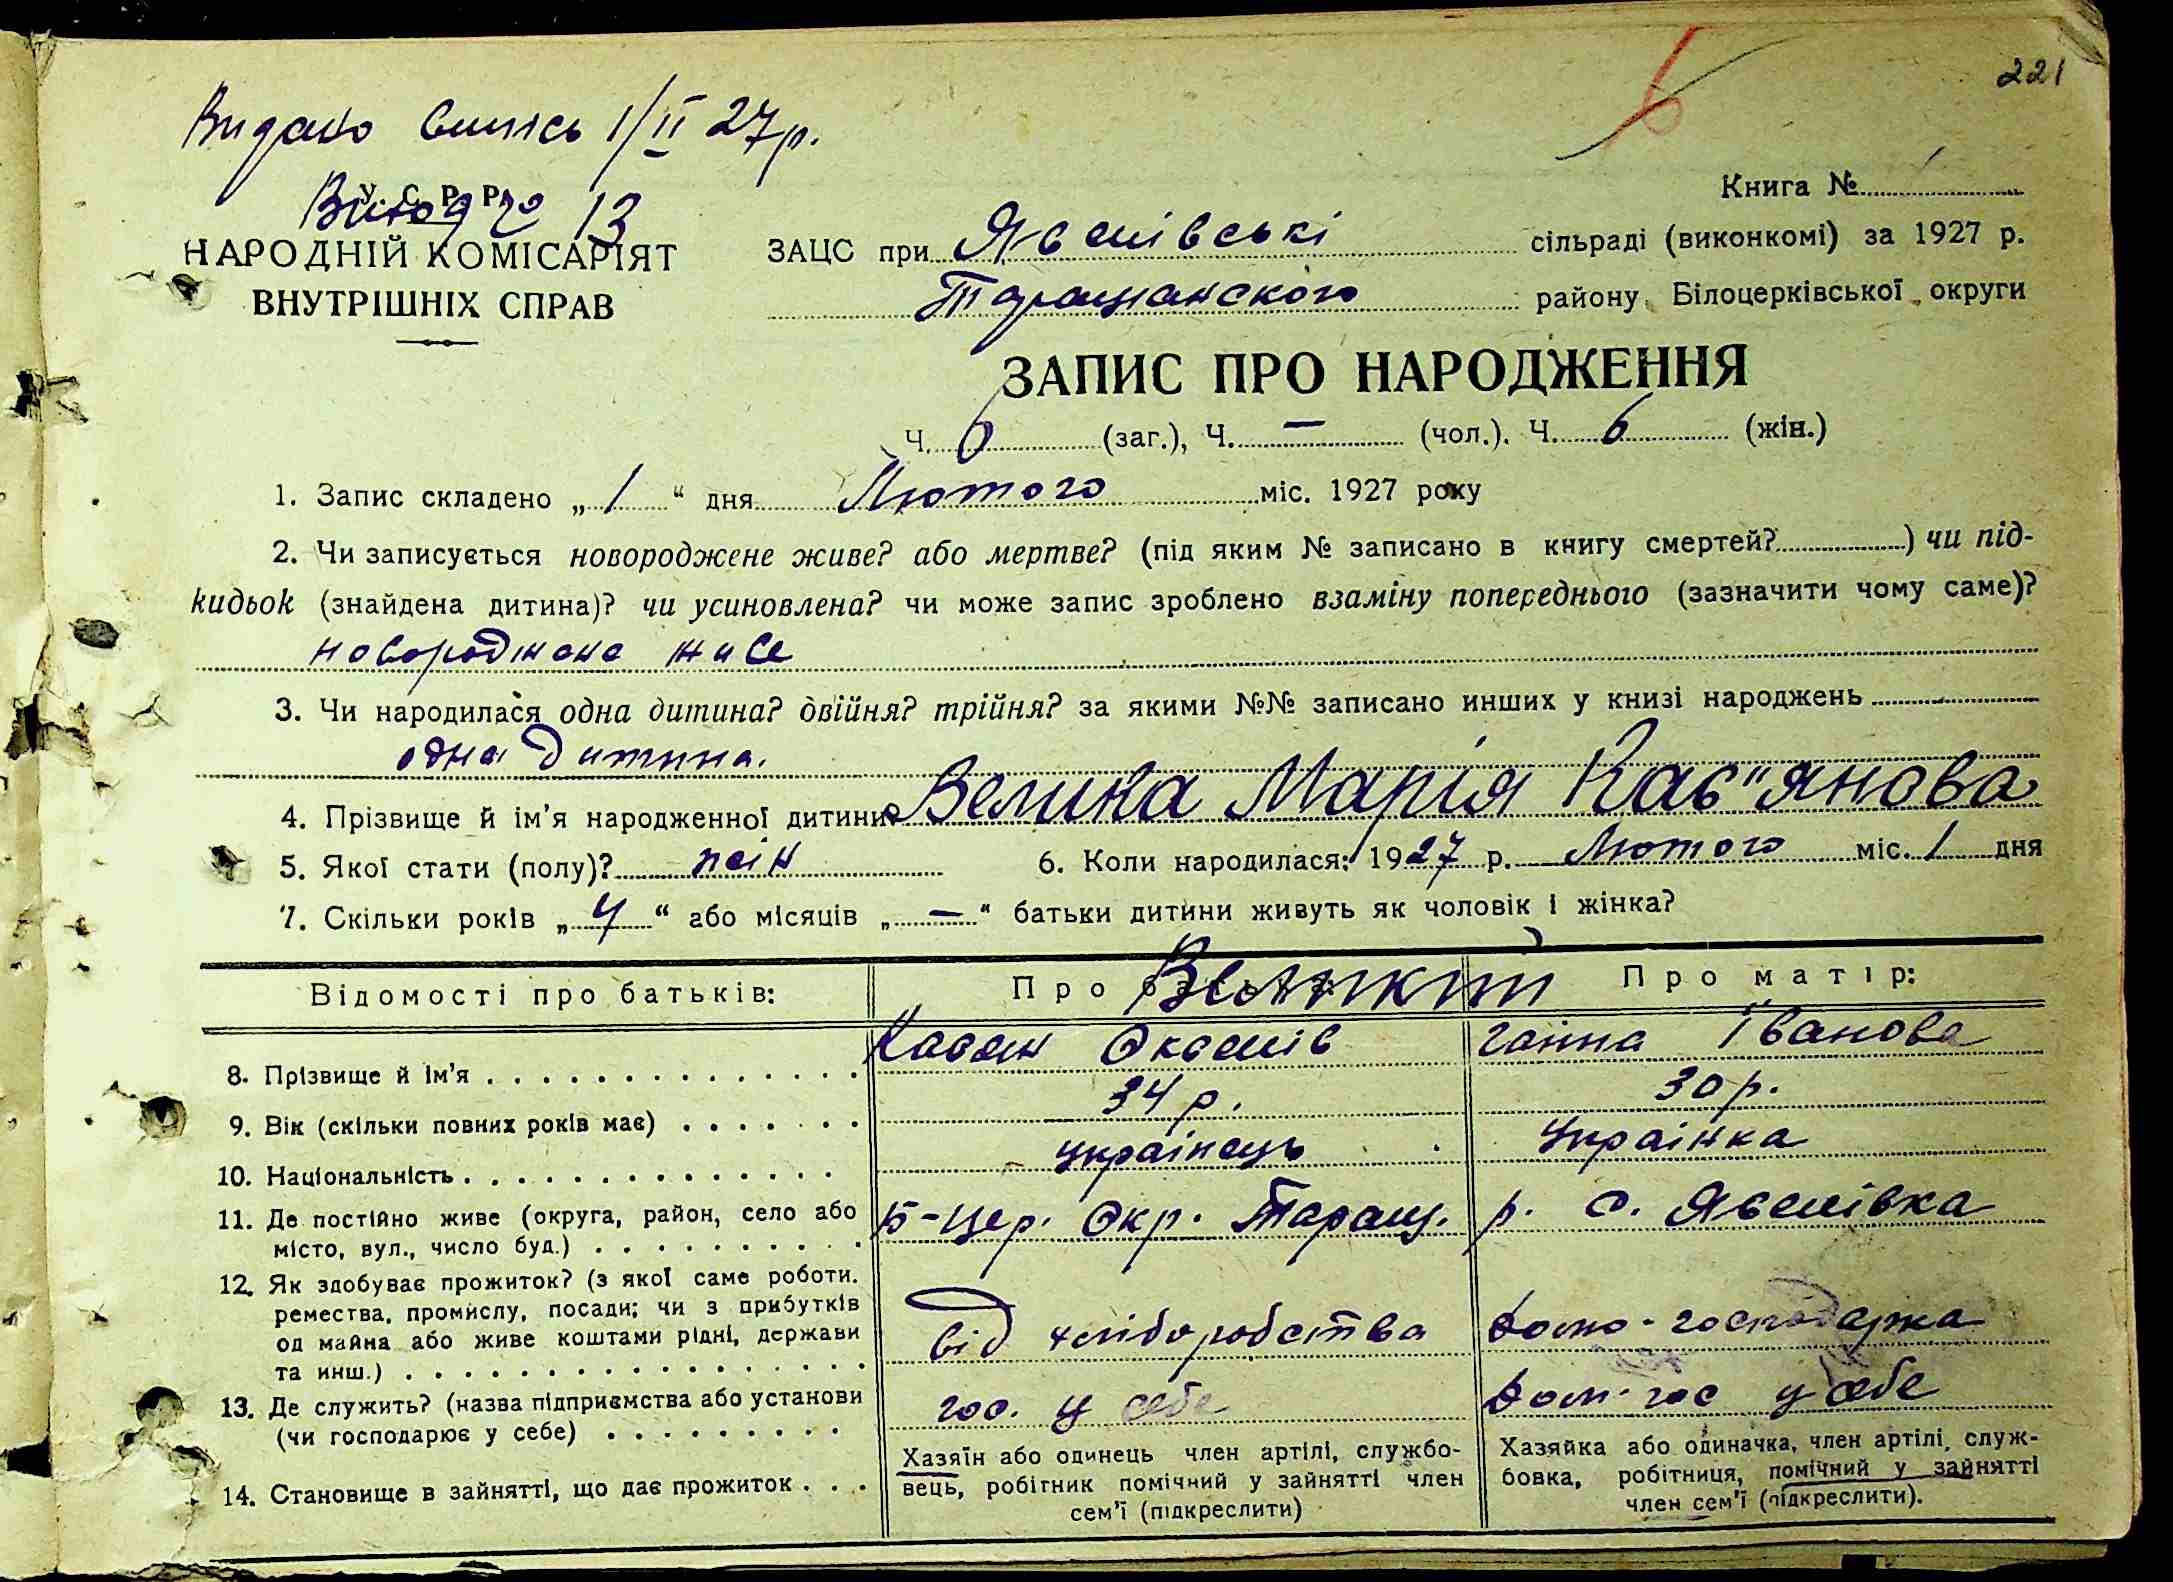 221
Видано випись 1/II 27р.
У. С. Р. Р.
13
НАРОДНІЙ КОМІСАРІЯТ
ВНУТРІШНІХ СПРАВ
Книга №
ЗАЦС при сільраді (виконкомі) за 1927 р.
Таращанского району, Білоцерківської округи
ЗАПИС ПРО НАРОДЖЕННЯ
Ч. 6 (заг.), Ч. — (чол.). Ч. 6 (жін.)
1. Запис складено „ 1 “ дня Лютого міс. 1927 року
2. Чи записується новороджене живе? або мертве? (під яким № записано в книгу смертей? ) чи під-
кидьок (знайдена дитина)? чи усиновлена? чи може запис зроблено взаміну попереднього (зазначити чому саме)?
новороджене живе
3. Чи народилася одна дитина? двійня? трійня? за якими №№ записано инших у книзі народжень
одна дитина.
4. Прізвище й ім'я народженної дитини Велика Марія Кас"янова
5. Якої стати (полу)? жін 6. Коли народилася: 1927 р. Лютого міс. 1 дня
7. Скільки років „ 4 “ або місяців „ — “ батьки дитини живуть як чоловік і жінка?
Відомості про батьків: Про Великий Про матір:
8. Прізвище й ім'я Касян Ганна Іванова
9. Вік (скільки повних років має) 34 р. 30 р.
10. Національність українець Українка
11. Де постійно живе (округа, район, село або Б-Цер. Окр. Таращ. р. с.
місто, вул., число буд.)
12. Як здобуває прожиток? (з якої саме роботи.
ремества, промислу, посади; чи з прибутків
од майна або живе коштами рідні, держави від хліборобства домо-господарка
та инш.)
13. Де служить? (назва підприємства або установи гос. у себе дом-гос у себе
(чи господарює у себе)
14. Становище в зайнятті, що дає прожиток
Хазяїн або одинець член артілі, службо-
вець, робітник помічний у зайнятті член
сем'ї (підкреслити)
Хазяйка або одиначка, член артілі, служ-
бовка, робітниця, помічний у зайнятті
член сем'ї (підкреслити).